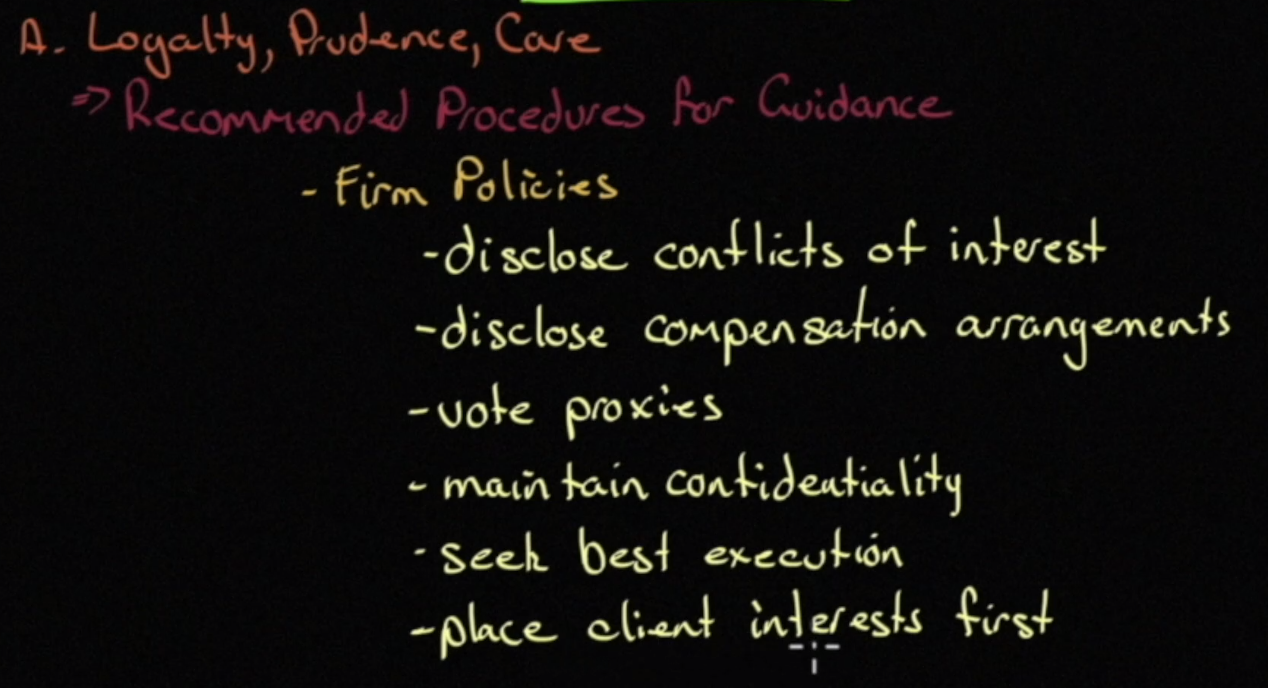 A. Loyalty, Prudence, Care
=> Recommended Procedures for Guidance
- Firm Policies
- disclose conflicts of interest
- disclose compensation arrangements
- vote proxies
- maintain confidentiality
- seek best execution
- place client interests first